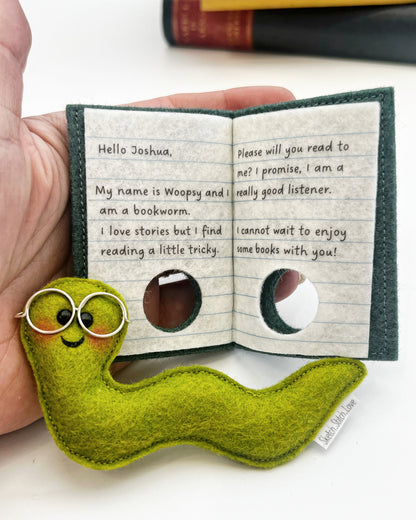 Hello Joshua,
My name is Woopsy and I
am a bookworm.
I love stories but I find
reading a little tricky.
Please will you read to
me? I promise, I am a
really good listener.
I cannot wait to enjoy
some books with you!
Sketch.Stitch.Love